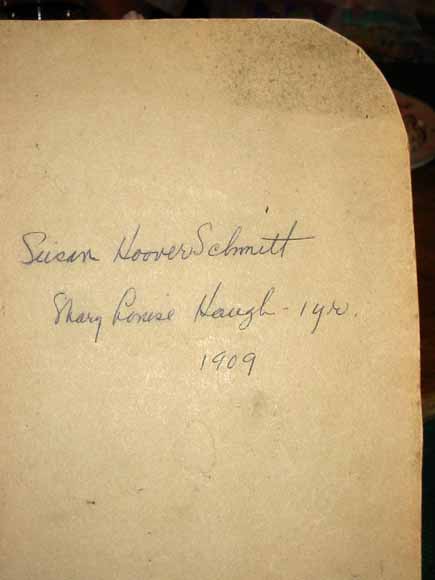 Susan Hoover Schmitt
Mary Louise Haugh - 1 yr.
1909